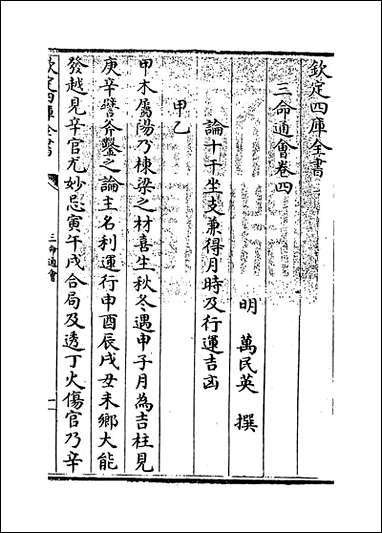 欽定四庫全書
三命通會卷四
明 萬民英 撰
論十干坐支兼得月時及行運吉凶
甲乙
甲木屬陽乃棟梁之材喜生秋冬遇申子月為吉柱見
庚辛譬斧鑿之論主名利運行申酉辰戌丑未鄉大能
發越見辛官尤妙忌寅午戌合局及透丁火傷官乃辛
欽定四庫全書
三命通會
一